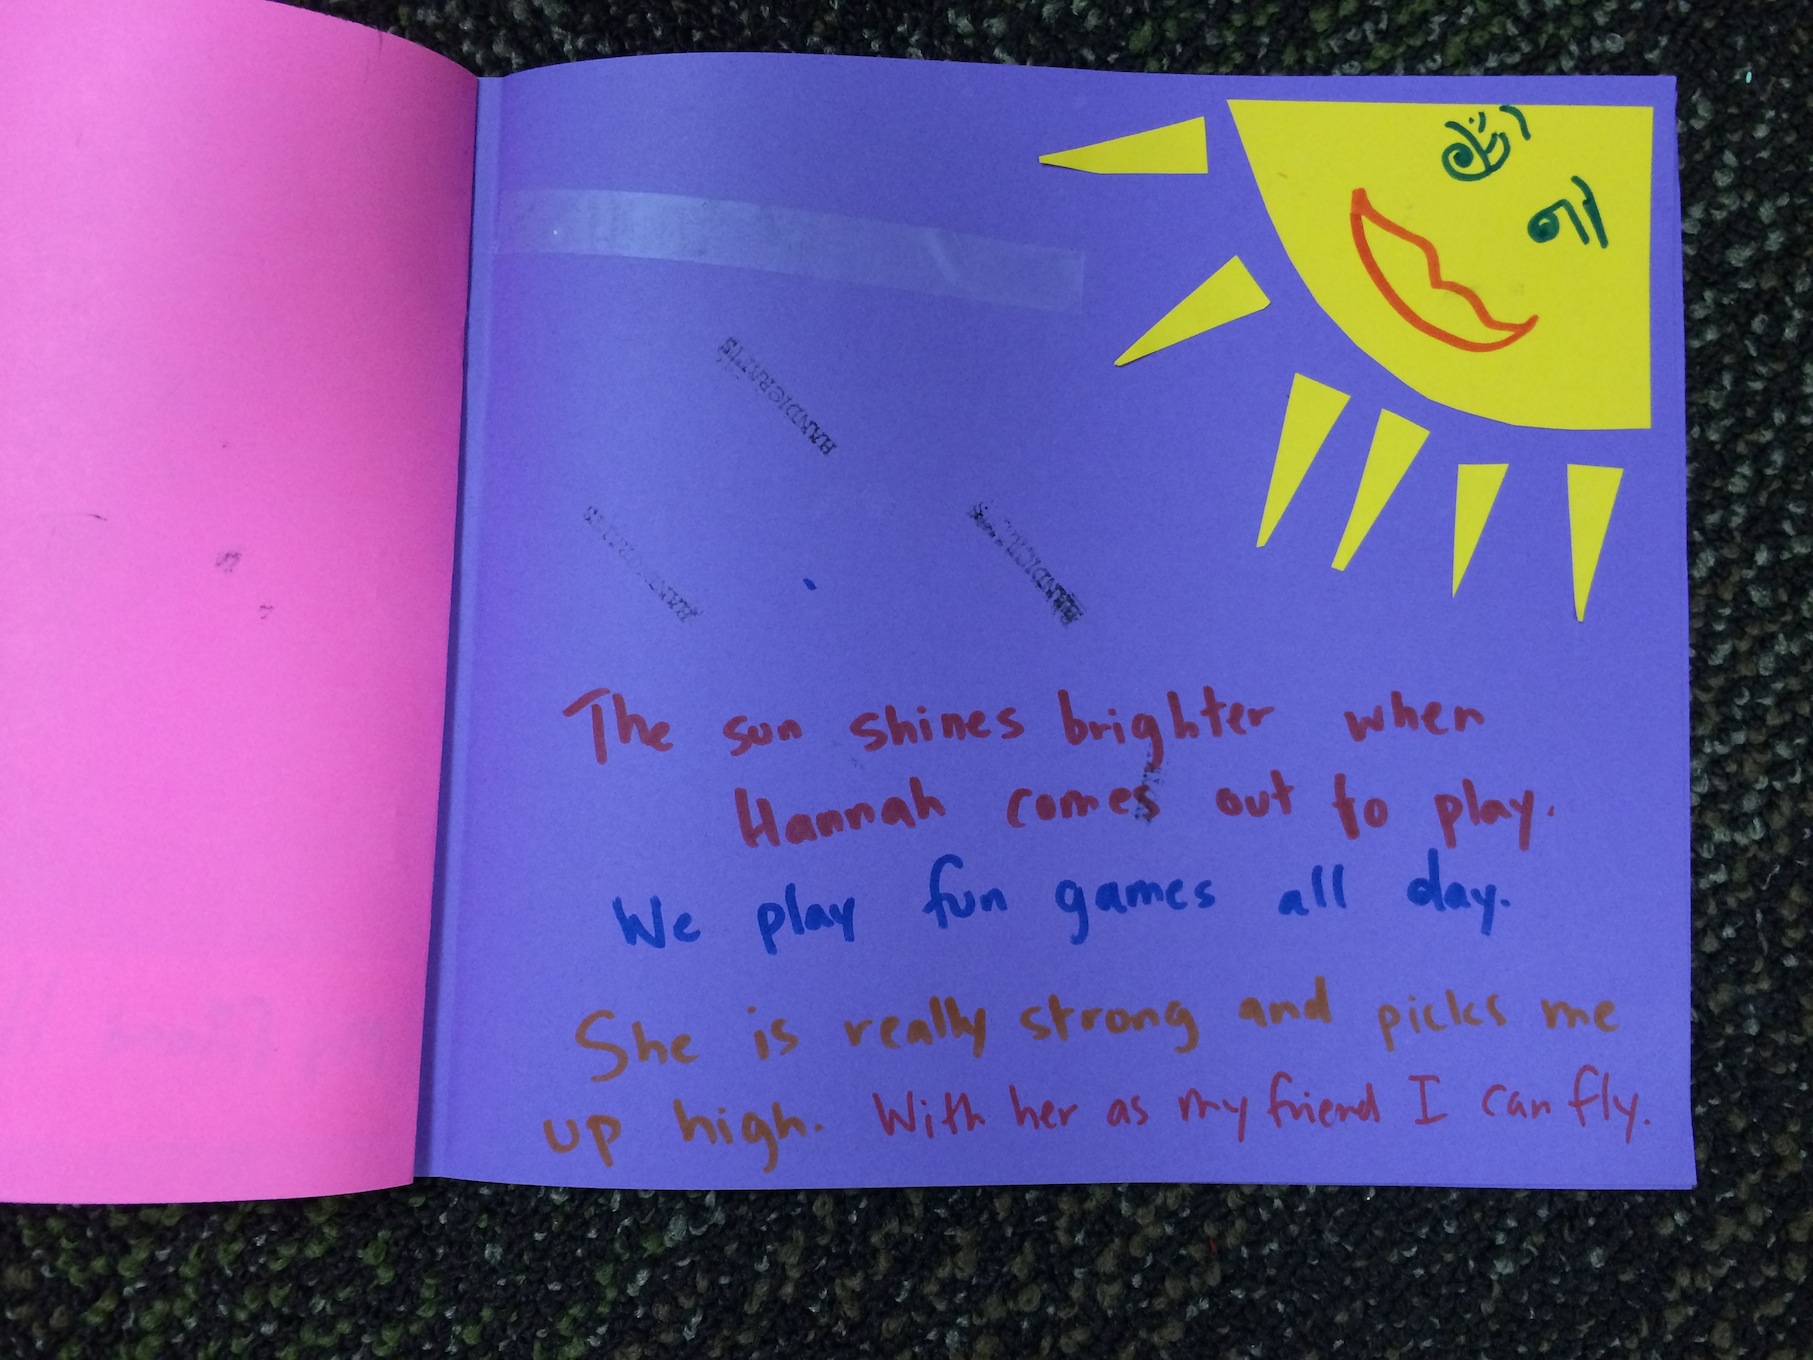 HANDICRAFTS
The sun shines brighter when
Hannah comes out to play.
We play fun games all day.
She is really strong and picks me
up high. With her as my friend I can fly.